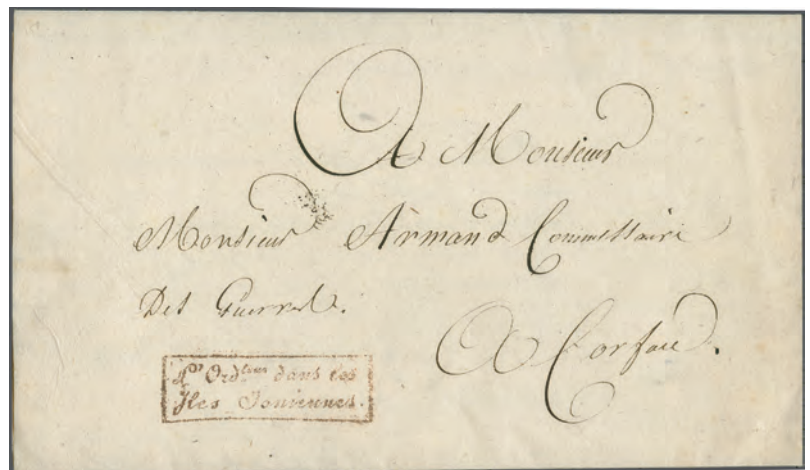 A Monsieur
Monsieur Armand Commissaire
Des Guerres.
A Corfou.
Ordteur dans les
Iles Ioniennes.